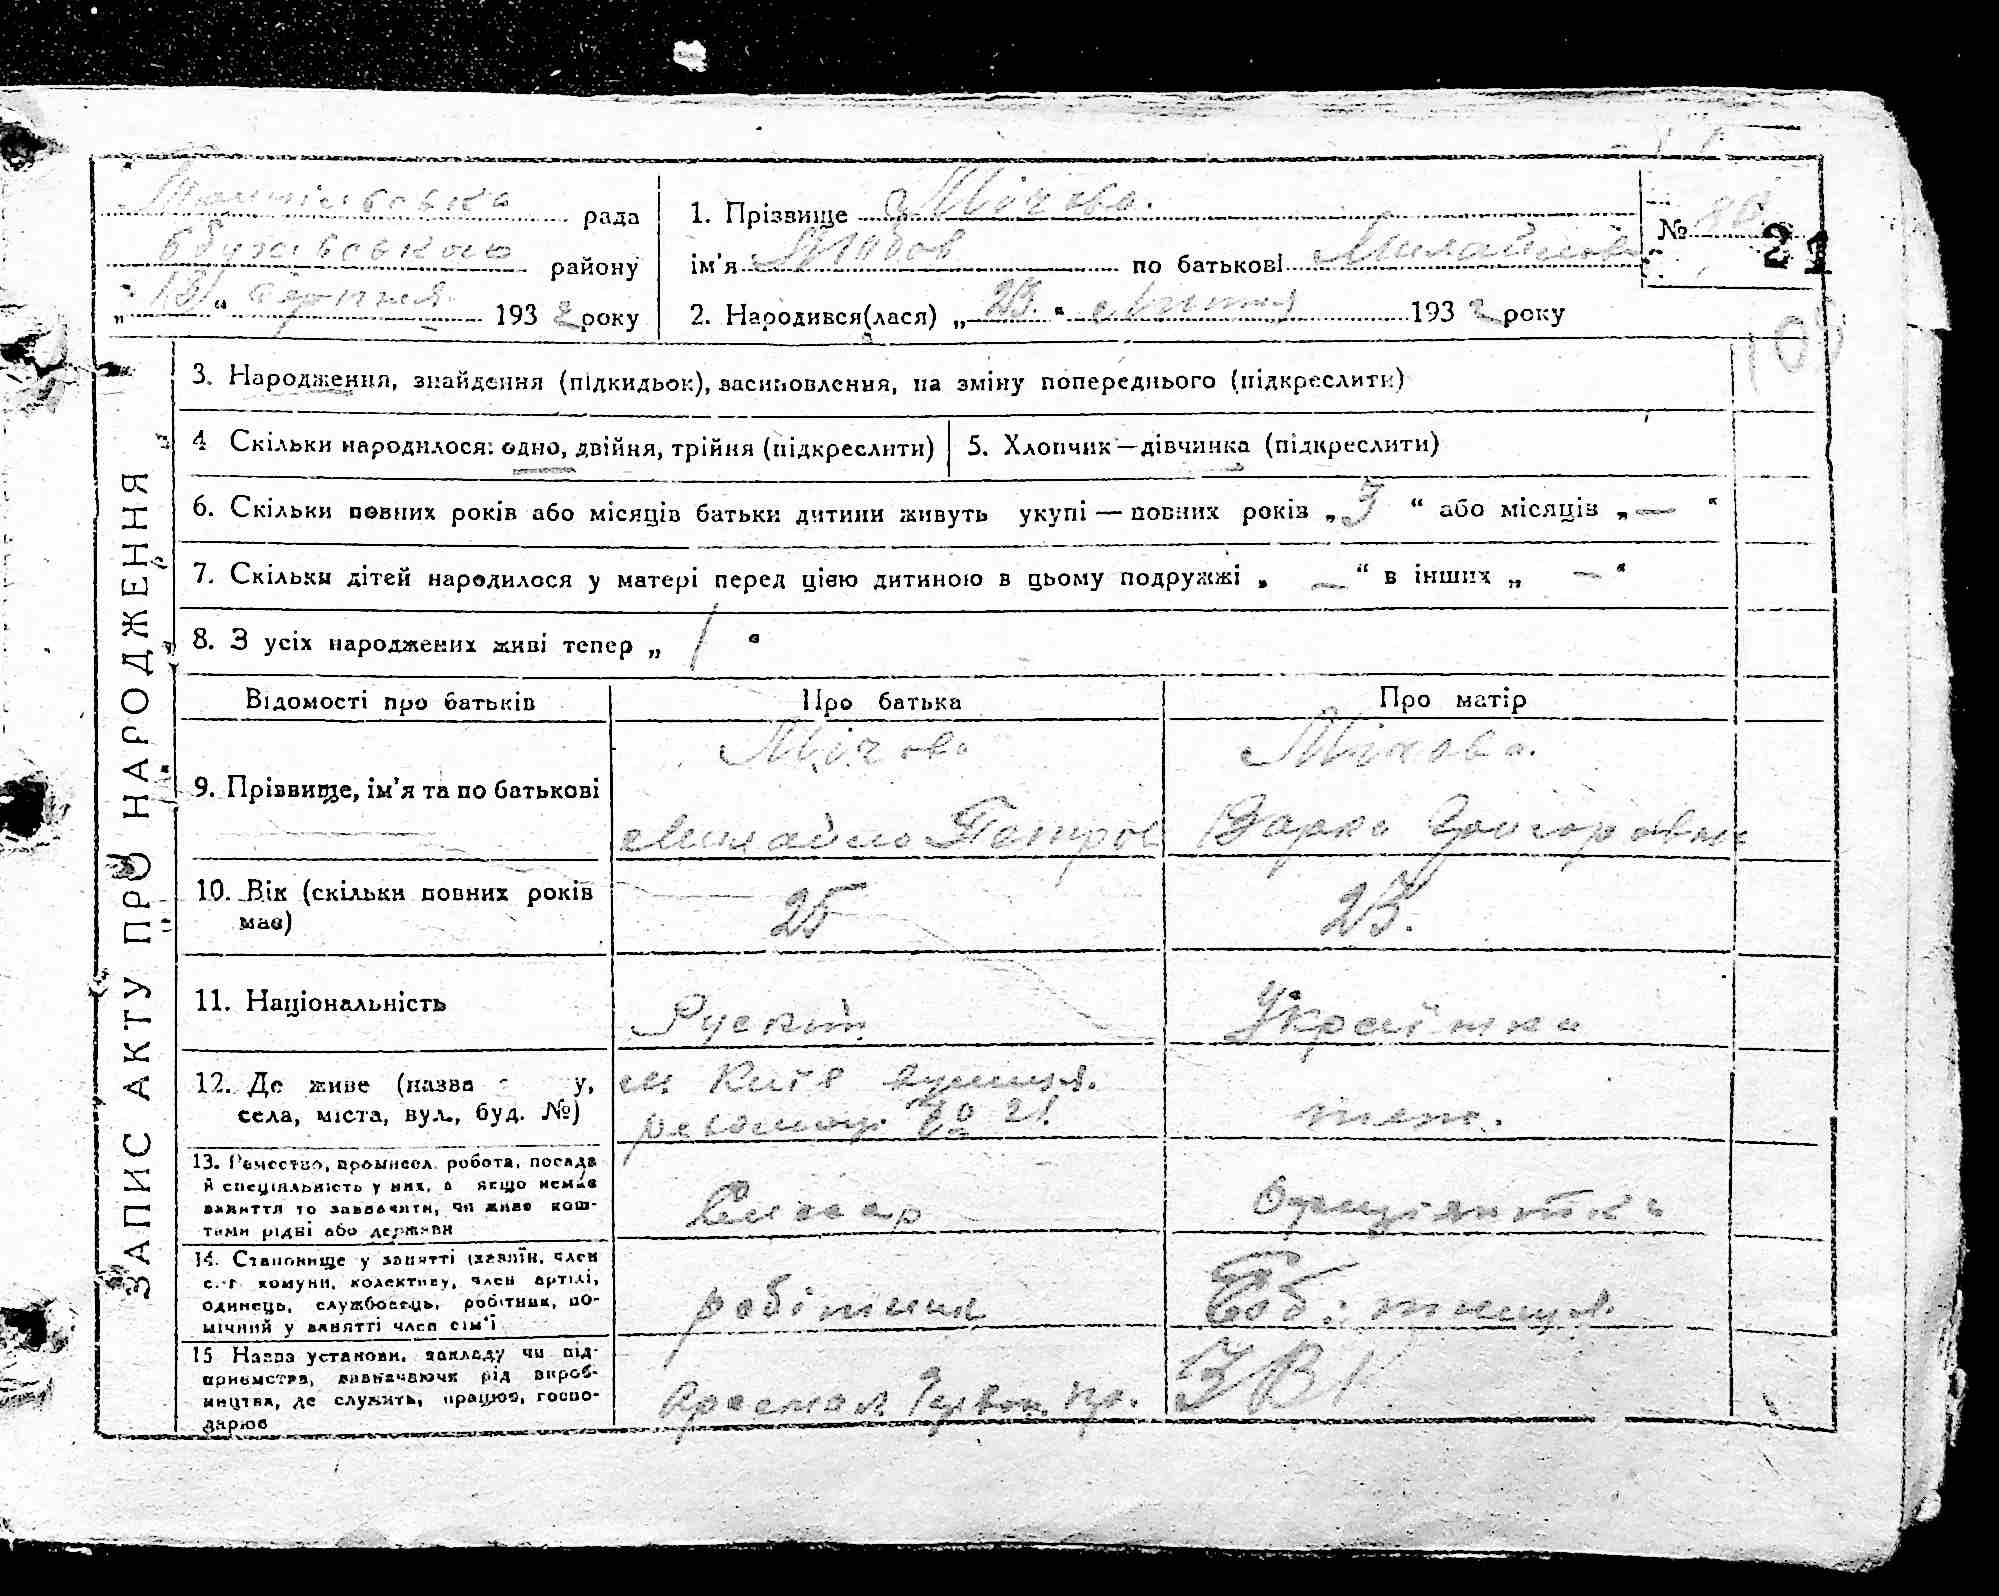 рада
району
„ 19 “ серпня 193 2 року
1. Прізвище Мічова.
ім'я Любов по батькові Михайлов
2. Народився(лася) „ 23. “ Липня 193 2 року
№ 80
21
109
ЗАПИС АКТУ ПРО НАРОДЖЕННЯ
3. Народження, знайдення (підкидьок), васиновлення, на зміну попереднього (підкреслити)
4 Скільки народилося: одно, двійня, трійня (підкреслити)
5. Хлопчик—дівчинка (підкреслити)
6. Скільки повних років або місяців батьки дитини живуть укупі — повних років „ 3 “ або місяців „ — “
7. Скільки дітей народилося у матері перед цією дитиною в цьому подружжі „ — “ в інших „ — “
8. З усіх народжених живі тепер „ 1 “
Відомості про батьків
Про батька
Про матір
9. Прізвище, ім'я та по батькові
Мічова
Михайло Петров
Мічова.
Варка Григоровна
10. Вік (скільки повних років
має)
25
23.
11. Національність
Руский
Українка
12. Де живе (назва у,
села, міста, вул., буд. №)
м Київ вулиця.
революц. 21
теж.
13. Ремество, промисел, робота, посада
й спеціяльність у них, а якщо немає
заняття то зазначити, чи живе кош-
тами рідні або держави
Слюсар
Офиціянтка
14. Становище у занятті (хазяїн, член
с.-г. комуни, колективу, член артілі,
одинець, службовець, робітник, по-
мічний у занятті член сім'ї
робітник
Робітниця.
15 Назва установи, закладу чи під-
приємства, визначаючи рід вироб-
ництва, де служить, працює, госпо-
дарює
Арсенал
ЗВК